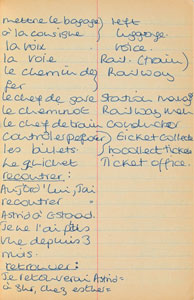 mettre le bagage } left
à la consigne } luggage.
la voix voice.
la voie Rail. (train)
le chemin de } Railway
fer
le chef de gare Station manag
le cheminot Railway man
le chef de train Conductor
contrôler
les billets.
Le guichet Ticket office.
rencontrer:
Aujord'hui, j'ai
recontrer
Astrid à
Je ne l'ai pas
vue depuis 3
mois.
retrouver:
Je retrouverai Astrid
à 3hr, chez esther